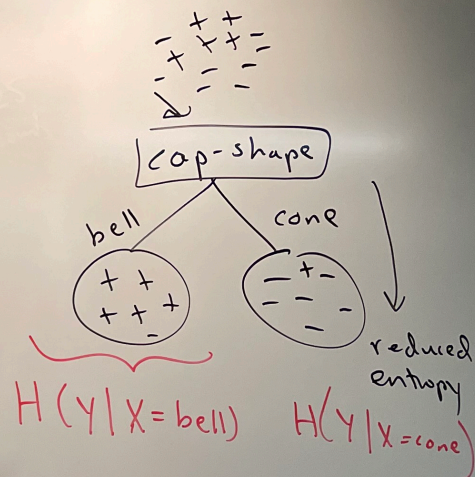 + +
- + + -
+ -
- - -
- -
cap-shape
bell cone
+ +
+ + +
-
- + -
- - -
-
reduced
entropy
H(Y|X=bell) H(Y|X=cone)